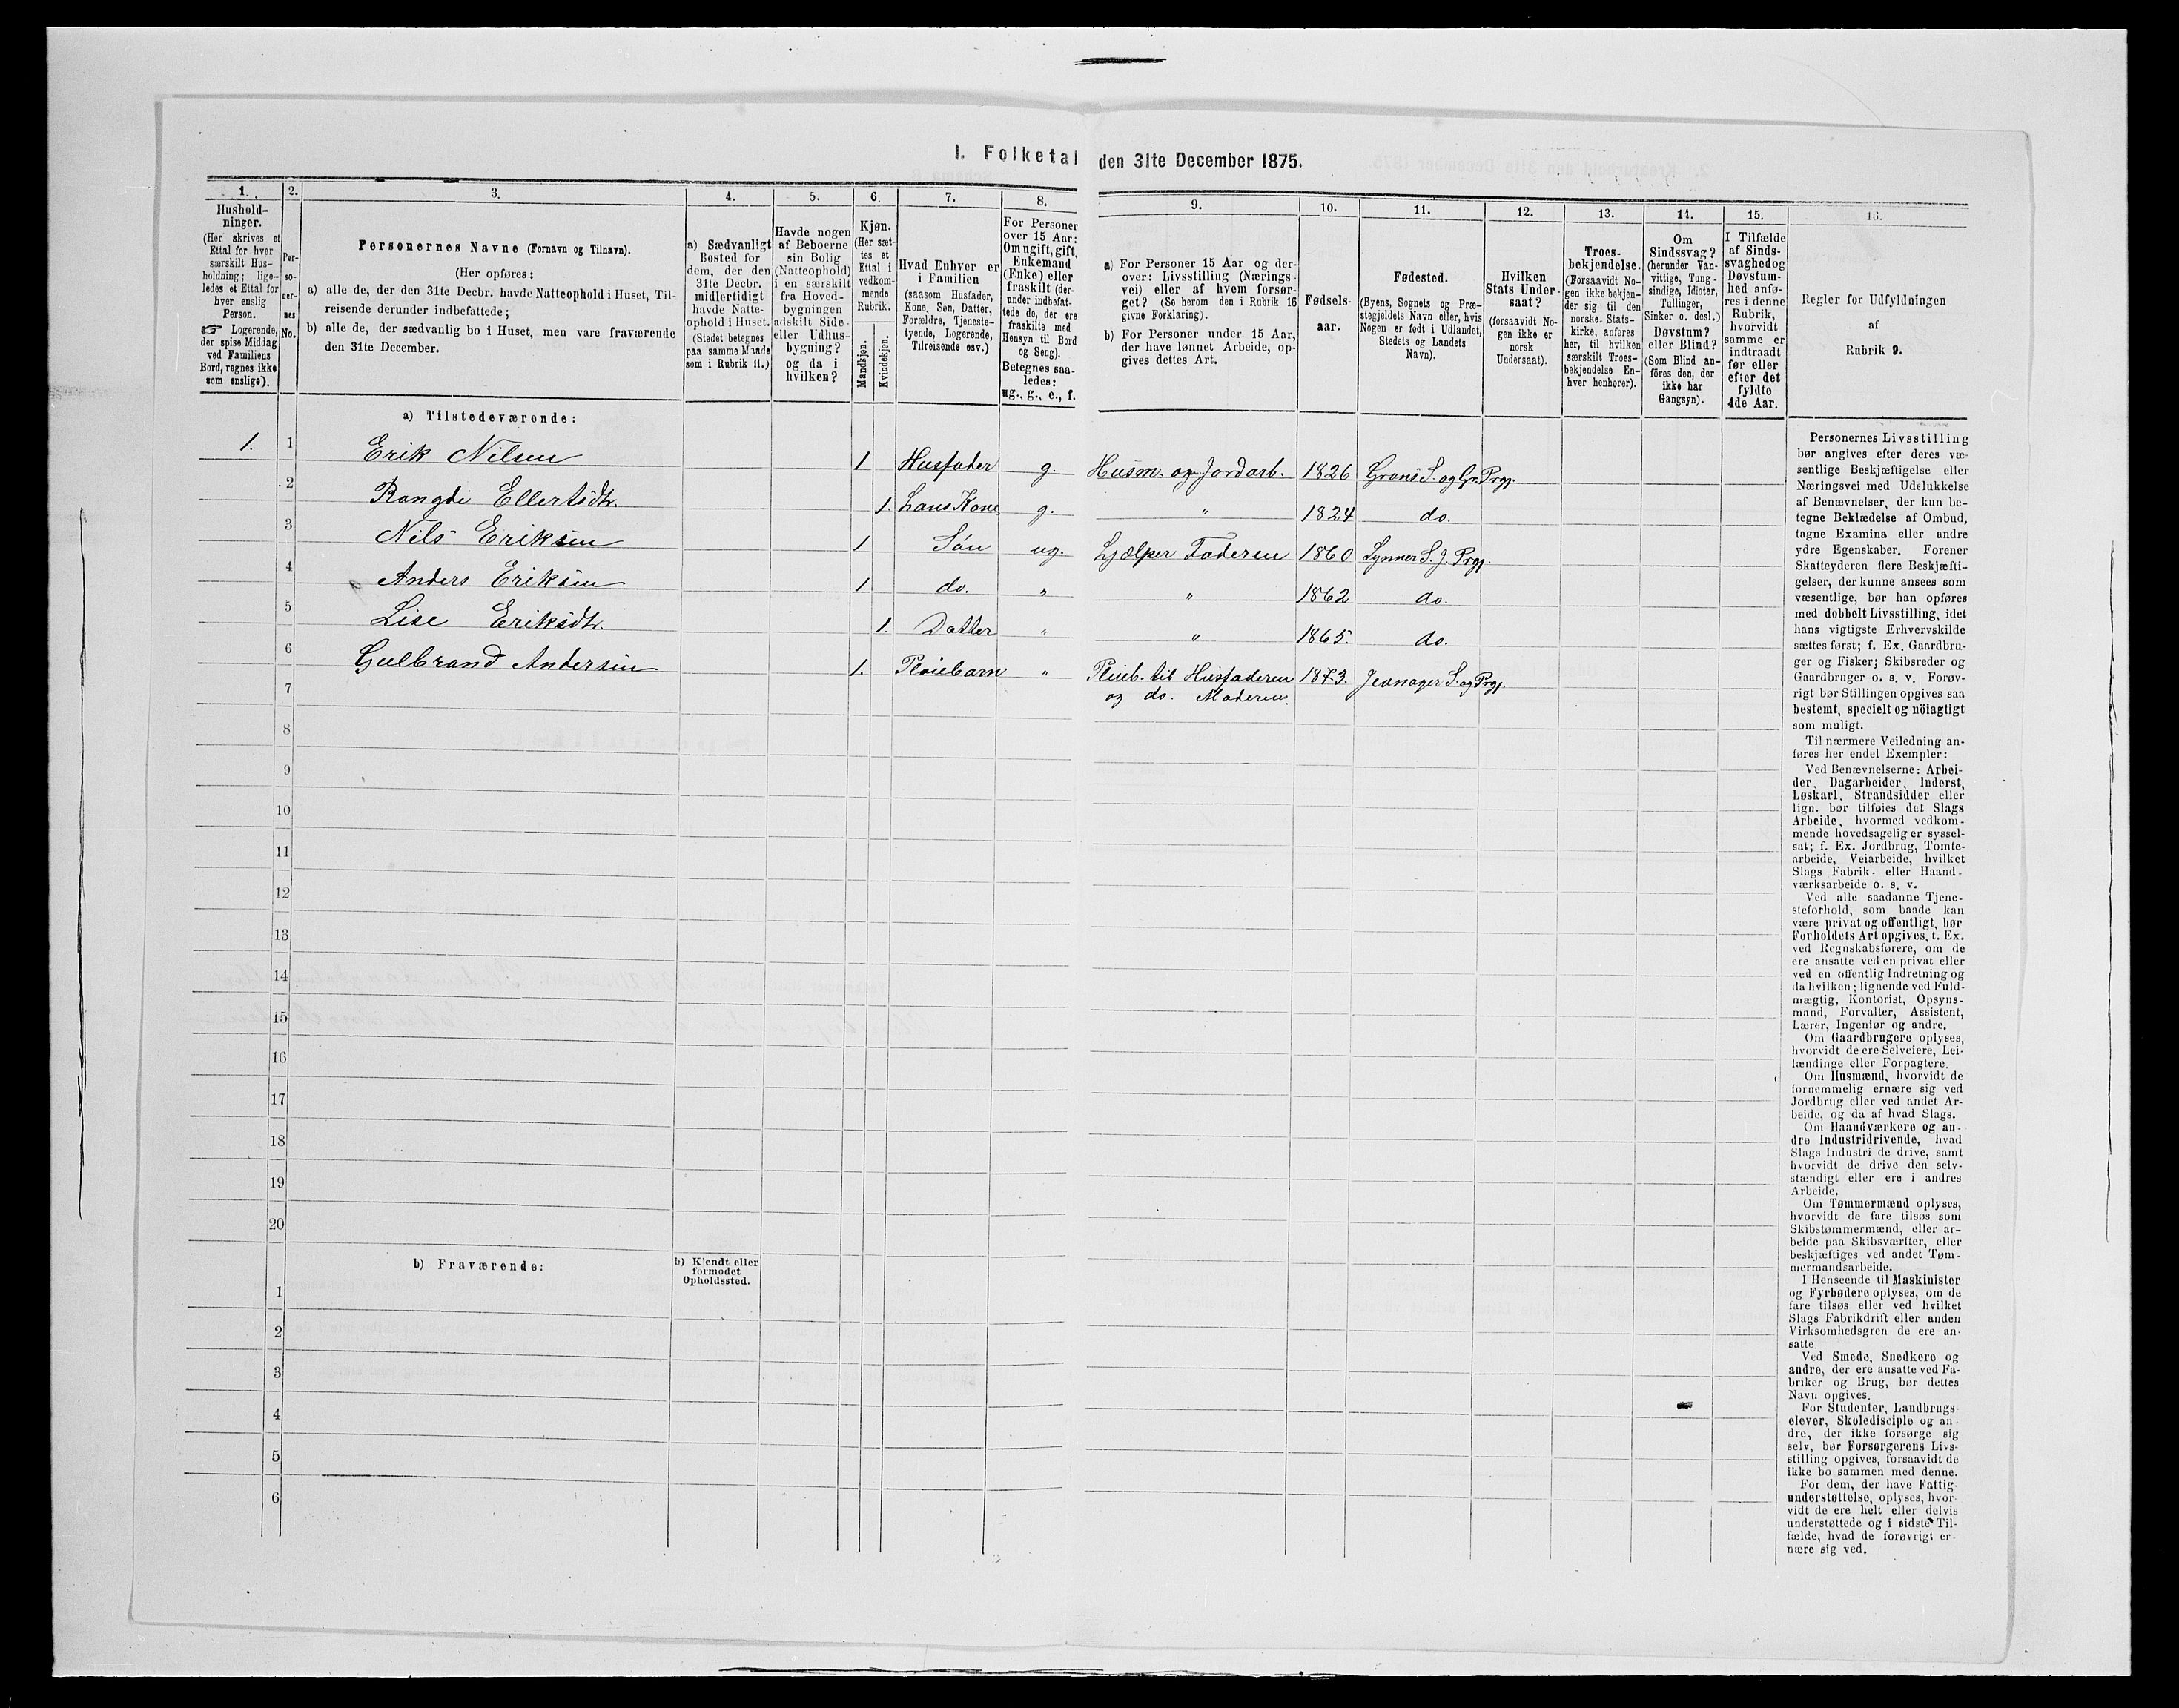 I. Folketal den 31te December 1875.
1. 2. 3. 4. 5. 6. 7. 8. 9. 10. 11. 12. 13. 14. 15. 16.
Hushold-
ninger.
(Her skrives et
Ettal for hver
særskilt Hus-
holdning; lige-
ledes et Ettal for
hver enslig
Person.
☞ Logerende,
der spise Middag
ved Familiens
Bord, regnes ikke
som enslige).
Per-
so-
ner-
nes
No.
Personernes Navne (Fornavn og Tilnavn).
(Her opføres:
a) alle de, der den 31te Decbr. havde Natteophold i Huset, Til-
reisende derunder indbefattede;
b) alle de, der sædvanlig bo i Huset, men vare fraværende
den 31te December.
a) Sædvanligt
Bosted for
dem, der den
31te Decbr.
midlertidigt
havde Natte-
ophold i Huset.
(Stedet betegnes
paa samme Maade
som i Rubrik 11.)
Havde nogen
af Beboerne
sin Bolig
(Natteophold)
i en særskilt
fra Hoved-
bygningen
adskilt Side-
eller Udhus-
bygning?
og da i
hvilken?
Kjøn.
(Her sæt-
tes et
Ettal i
vedkom-
mende
Rubrik.
Mandkjøn.
Kvindekjøn.
Hvad Enhver er
i Familien
(saasom Husfader,
Kone, Søn, Datter,
Forældre, Tjeneste-
tyende, Logerende,
Tilreisende osv.)
For Personer
over 15 Aar:
Om ugift, gift,
Enkemand
(Enke) eller
fraskilt (der-
under indbefat-
tede de, der ere
fraskilte med
Hensyn til Bord
og Seng).
Betegnes saa-
ledes:
ug., g., e., f.
a) For Personer 15 Aar og der-
over: Livsstilling (Nærings-
vei) eller af hvem forsør-
get? (Se herom den i Rubrik 16
givne Forklaring).
b) For Personer under 15 Aar,
der have lønnet Arbeide, op-
gives dettes Art.
Fødsels-
aar.
Fødested.
(Byens, Sognets og Præ-
stegjeldets Navn eller, hvis
Nogen er født i Udlandet,
Stedets og Landets
Navn).
Hvilken
Stats Under-
saat?
(forsaavidt No-
gen ikke er
norsk
Undersaat).
Troes-
bekjendelse.
(Forsaavidt No-
gen ikke bekjen-
der sig til den
norske Stats-
kirke, anføres
her, til hvilken
særskilt Troes-
bekjendelse En-
hver henhører).
Om
Sindssvag?
(herunder Van-
vittige, Tung-
sindige, Idioter,
Tullinger,
Sinker o. desl.)
Døvstum?
eller Blind?
(Som Blind an-
føres den, der
ikke har
Gangsyn).
I Tilfælde
af Sinds-
svaghed og
Døvstum-
hed anfø-
res i denne
Rubrik,
hvorvidt
samme er
indtraadt
før eller
efter det
fyldte
4de Aar.
Regler for Udfyldningen
af
Rubrik 9.
a) Tilstedeværende:
1. 1 Erik Nilsen 1 Husfader g. Husm. og Jordarb. 1826 Grans S. og Gr. Prgj.
2 Rangdi Ellertsdtr. 1. hans Kone g. " 1824 do.
3 Nils Eriksen 1 Søn ug. hjælper Faderen 1860 Lynner S. J. Prgj.
4 Anders Eriksen 1 do. " " 1862 do.
5 Lise Eriksdtr. 1. Datter " " 1865. do.
6 Gulbrand Andersen 1. Pleiebarn " Pleieb. til Husfaderen 1873. Jevnager S. og Prgj.
og do. Moderen.
7
8
9
10
11
12
13
14
15
16
17
18
19
20
b) Fraværende:
b) Kjendt eller
formodet
Opholdssted.
1
2
3
4
5
6
Personernes Livsstilling
bør angives efter deres væ-
sentlige Beskjæftigelse eller
Næringsvei med Udelukkelse
af Benævnelser, der kun be-
tegne Beklædelse af Ombud,
tagne Examina eller andre
ydre Egenskaber. Forener
Skatteyderen flere Beskjæfti-
gelser, der kunne ansees som
væsentlige, bør han opføres
med dobbelt Livsstilling, idet
hans vigtigste Erhvervskilde
sættes først; f. Ex. Gaardbru-
ger og Fisker; Skibsreder og
Gaardbruger o. s. v. Forøv-
rigt bør Stillingen opgives saa
bestemt, specielt og nöiagtigt
som muligt.
Til nærmere Veiledning an-
føres her endel Exempler:
Ved Benævnelserne: Arbei-
der, Dagarbeider, Inderst,
Løskarl, Strandsidder eller
lign. bør tilføies det Slags
Arbeide, hvormed vedkom-
mende hovedsagelig er syssel-
sat; f. Ex. Jordbrug, Tomte-
arbeide, Veiarbeide, hvilket
Slags Fabrik- eller Haand-
værksarbeide o. s. v.
Ved alle saadanne Tjene-
steforhold, som baade kan
være privat og offentligt, bør
Forholdets Art opgives, t. Ex.
ved Regnskabsførere, om de
ere ansatte ved en privat eller
ved en offentlig Indretning og
da hvilken; lignende ved Fuld-
mægtig, Kontorist, Opsyns-
mand, Forvalter, Assistent,
Lærer, Ingeniør og andre.
Om Gaardbrugere oplyses,
hvorvidt de ere Selveiere, Lei-
lændinge eller Forpagtere.
Om Husmænd, hvorvidt de
fornemmelig ernære sig ved
Jordbrug eller ved andet Ar-
beide, og da af hvad Slags.
Om Haandværkere og an-
dre Industridrivende, hvad
Slags Industri de drive, samt
hvorvidt de drive den selv-
stændigt eller ere i andres
Arbeide.
Om Tømmermænd oplyses,
hvorvidt de fare tilsøs som
Skibstømmermænd, eller ar-
beide paa Skibsværfter, eller
beskjæftiges ved andet Tøm-
mermandsarbeide.
I Henseende til Maskinister
og Fyrbødere oplyses, om de
fare tilsøs eller ved hvilket
Slags Fabrikdrift eller anden
Virksomhedsgren de ere an-
satte.
Ved Smede, Snedkere og
andre, der ere ansatte ved Fa-
briker og Brug, bør dettes
Navn opgives.
For Studenter, Landbrugs-
elever, Skoledisciple og an-
dre, der ikke forsørge sig
selv, bør Forsørgerens Livs-
stilling opgives, forsaavidt de
ikke bo sammen med denne.
For dem, der have Fattig-
understøttelse, oplyses, hvor-
vidt de ere helt eller delvis
understøttede og i sidste Til-
fælde, hvad de forøvrigt er-
nære sig ved.